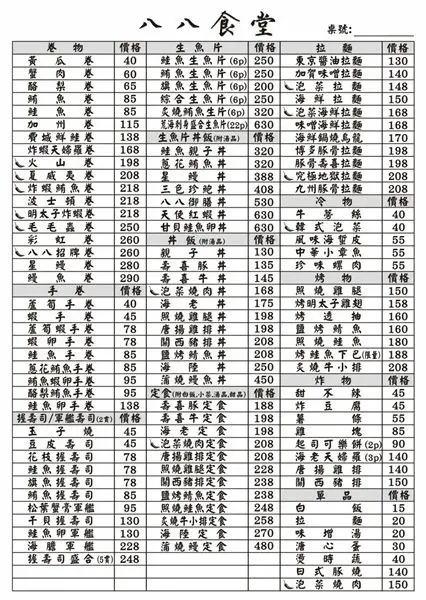 八八食堂
桌號:
卷物 價格
黃瓜卷 40
蟹肉卷 60
酪梨卷 65
鮪魚卷 85
鮭魚卷 85
加州卷 115
費城鮮蝦卷 138
炸蝦天婦羅卷 168
火山卷 198
夏威夷卷 208
炸蝦鮪魚卷 218
波士頓卷 218
明太子炸蝦卷 218
毛毛蟲卷 250
彩虹卷 260
八八招牌卷 260
星鰻卷 280
鰻魚卷 290
手卷 價格
蘆筍手卷 40
蝦手卷 45
蘆筍蝦手卷 78
鮪魚手卷 85
鮭魚手卷 85
蔥花鮪魚手卷 85
鮪魚蝦卵手卷 95
酪梨鮪魚手卷 95
鮭魚卵手卷 138
握壽司/軍艦壽司(2貫) 價格
玉子燒 45
豆皮壽司 45
花枝握壽司 78
鮭魚握壽司 78
旗魚握壽司 78
鮪魚握壽司 85
松葉蟹膏軍艦 95
干貝握壽司 130
鮭魚卵軍艦 130
海膽軍艦 228
握壽司盛合(5貫) 248
生魚片 價格
鮭魚生魚片(6p) 250
鮪魚生魚片(6p) 250
旗魚生魚片(6p) 200
綜合生魚片(6p) 250
炙燒鮪魚生魚片(6p) 320
荒海刺身盛合生魚片(22p) 630
生魚片丼飯(附湯品) 價格
鮭魚親子丼 320
蔥花鮪魚丼 320
星鰻丼 388
三色珍絶丼 408
八八御膳丼 530
天使紅蝦丼 630
甘貝鮭魚卵丼 630
丼飯(附湯品) 價格
親子丼 130
壽喜豚丼 135
壽喜牛丼 145
泡菜燒肉丼 168
海老丼 175
照燒雞腿丼 198
唐揚雞排丼 198
關西豬排丼 198
鹽烤鯖魚丼 198
炙燒牛小排丼 250
海陸丼 250
蒲燒鰻魚丼 450
定食(附白飯,小菜,湯品,甜品) 價格
壽喜豚定食 188
壽喜牛定食 198
泡菜燒肉定食 208
照燒雞腿定食 228
唐揚雞排定食 228
關西豬排定食 238
鹽烤鯖魚定食 238
綜合炸蝦定食 248
炙燒牛小排定食 258
海陸定食 270
蒲燒鰻定食 480
拉麵 價格
東京醬油拉麵 130
加賀味噌拉麵 140
泡菜拉麵 148
海鮮拉麵 150
泡菜海鮮拉麵 168
味噌海鮮拉麵 168
海鮮鍋燒烏龍 170
博多豚骨拉麵 198
豚骨壽喜拉麵 198
究極地獄拉麵 208
九州豚骨拉麵 208
冷物 價格
牛蒡絲 40
韓式泡菜 40
風味海蜇皮 55
中華小章魚 55
珍味螺肉 55
烤物 價格
照燒雞腿 150
烤明太子雞翅 158
烤透抽 160
鹽烤鯖魚 160
照燒鮭魚 180
烤鮭魚下巴(限量) 188
炙燒牛小排 200
炸物 價格
甜不辣 45
炸豆腐 45
薯條 55
雞塊 85
起司可樂餅(2p) 90
海老天婦羅(3p) 140
唐揚雞排 140
關西豬排 150
單品 價格
白飯 15
拉麵 20
味噌湯 20
溏心蛋 30
燙時蔬 40
日式豚燒 140
泡菜燒肉 150